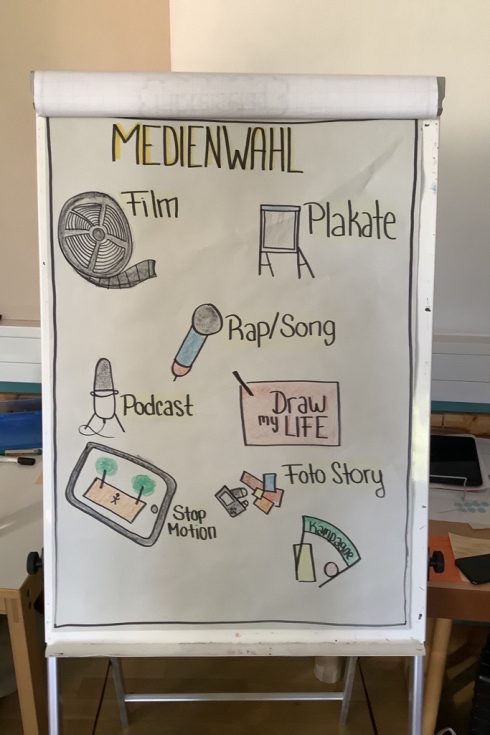 MEDIENWAHL
Film
Plakate
Rap/Song
Podcast
Draw
my LIFE
Foto Story
Stop
Motion
Kampagne